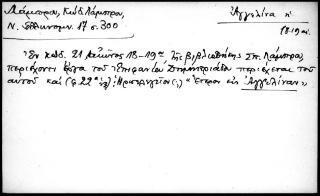 Λάμπρου, Κώδ. Λάμπρου,
Ν. Ἑλληνομν. 17 σ. 300
Ἀγγελίνα
18-19 αι.
Ἐν κώδ. 21 αἰῶνος 18-19ου τῆς βιβλιοθήκης Σπ. Λάμπρου,
περιέχονται ἔργα τοῦ Ἐπιφανίου Δημητριάδου περιέχεται τοῦ
αὐτοῦ καὶ (φ. 22α «Ἕτερον εἰς Ἀγγελίναν»